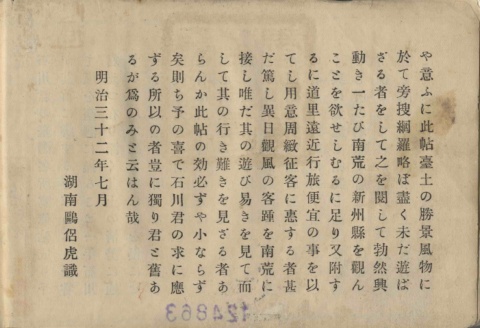 や意ふに此帖臺土の勝景風物に
於て旁搜網羅略ぼ盡く未だ遊ば
ざる者をして之を閲して勃然興
動き一たび南荒の新州縣を觀ん
ことを欲せしむるに足り又附す
るに道里遠近行旅便宜の事を以
てし用意周緻征客に惠する者甚
だ篤し異日觀風の客踵を南荒に
接し唯だ其の遊び易きを見て而
して其の行き難きを見ざる者あ
らんか此帖の効必ずや小ならず
矣則ち予の喜で石川君の求に應
ずる所以の者豈に獨り君と舊あ
るが爲のみと云はん哉
明治三十二年七月
湖南鷗侶虎識
424863